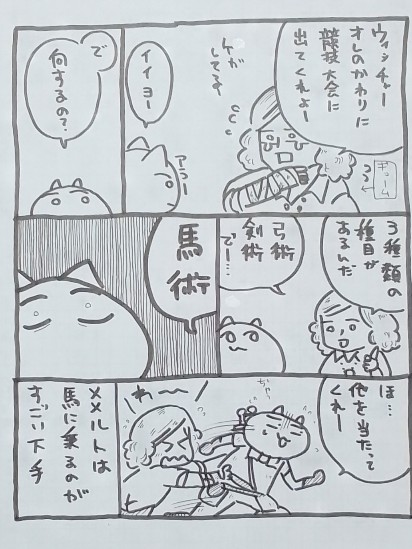 ウィッチャー
オレのかわりに
競技大会に
出てくれよー
ケガ
してる
ギョーム
イイヨー
アラー
で
何するの?
3種類の
種目が
あるんだ
弓術
剣術
でー…
馬術
ほ…
他を当たって
くれー
わ〜〜
メメルトは
馬に乗るのが
すごい下手